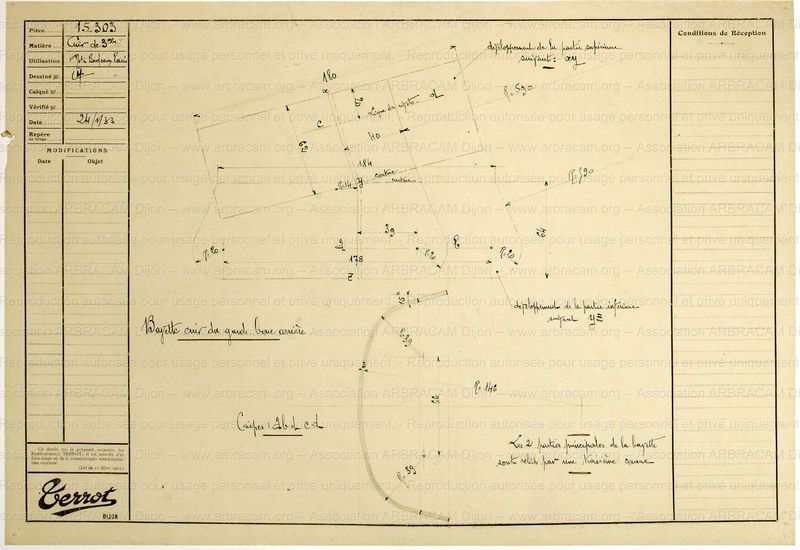 Pièce..... 15.303
Matière.... Cuir de 3 m/m
Utilisation
Dessiné par.
Calqué par..
Vérifié par..
Date..... 24/1/33
Repère
MODIFICATIONS
Date Objet
Conditions de Réception
développement de la partie supérieure
suivant: xy
180
x
R=590
Ligne de
d
c
40
62
184
y
R=590
64
R=20
39
R=20
178
z
développement de la partie inférieure
suivant yz
Bavette cuir du garde-boue arrière
R=39
R=146
Coupes: ab et cd
Les 2 parties principales de la bavette
sont reliées par une troisième cousue
R=39
Ce dessin est la propriété exclusive des
Etablissements TERROT; il est interdit d'en
faire usage ou de le communiquer sans autorisa-
tion expresse.
(Loi du 11 Mars 1902.)
Terrot
DIJON
Reproduction autorisée pour usage personnel et privé uniquement. -- Association ARBRACAM Dijon -- www.arbracam.org